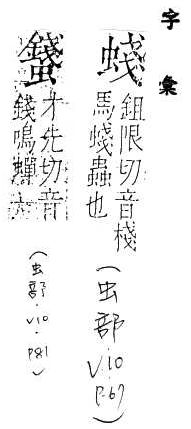 字彙
虥 鉏限切音棧
馬蝬蟲也
(虫部 V10 P.67)
才先切音
錢鳴蟬
(虫部 V10 P81)